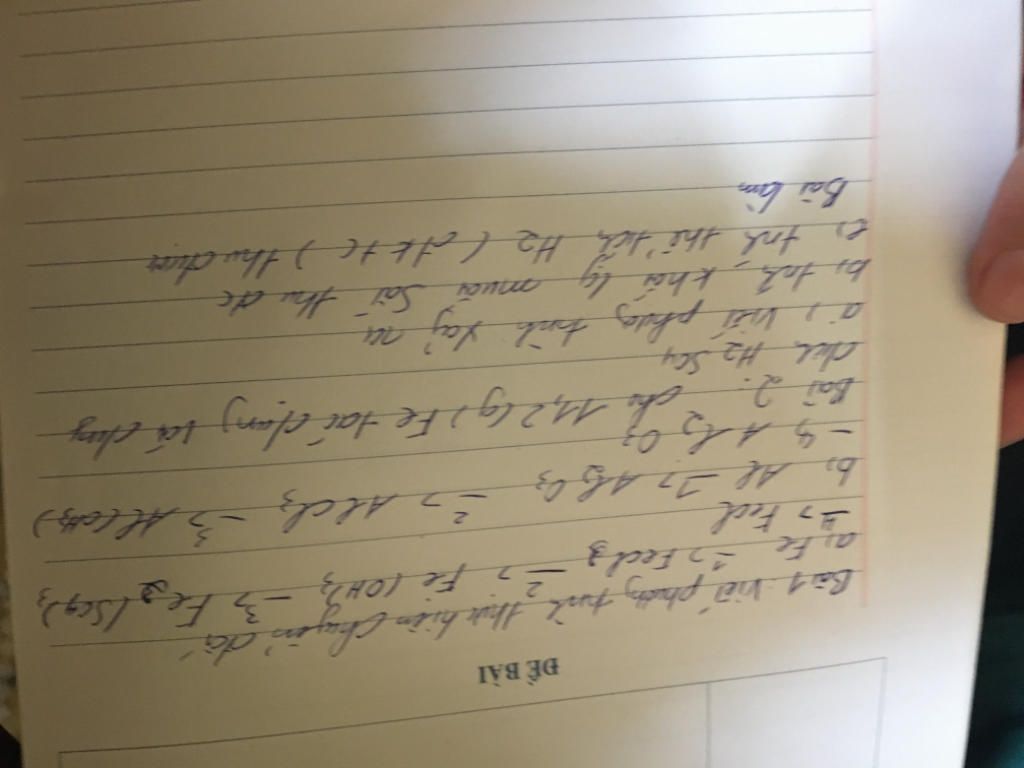 ĐỀ BÀI
Bài 1: Viết phương trình thực hiện chuyển đổi
a, Fe -1> FeCl3 -2> Fe(OH)3 -3> Fe2(SO4)3
-4> FeCl
b, Al -1> Al2O3 -2> AlCl3 -3> Al(OH)3
-4> Al2O3
Bài 2: cho 11,2 (g) Fe tác dụng với dung
dịch H2SO4
a, viết phương trình xảy ra
b, tính khối lg muối sắt thu đc
c, tính thể tích H2 (đktc) thu được
Bài làm